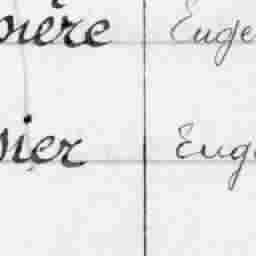 pière Euge
sier Euge